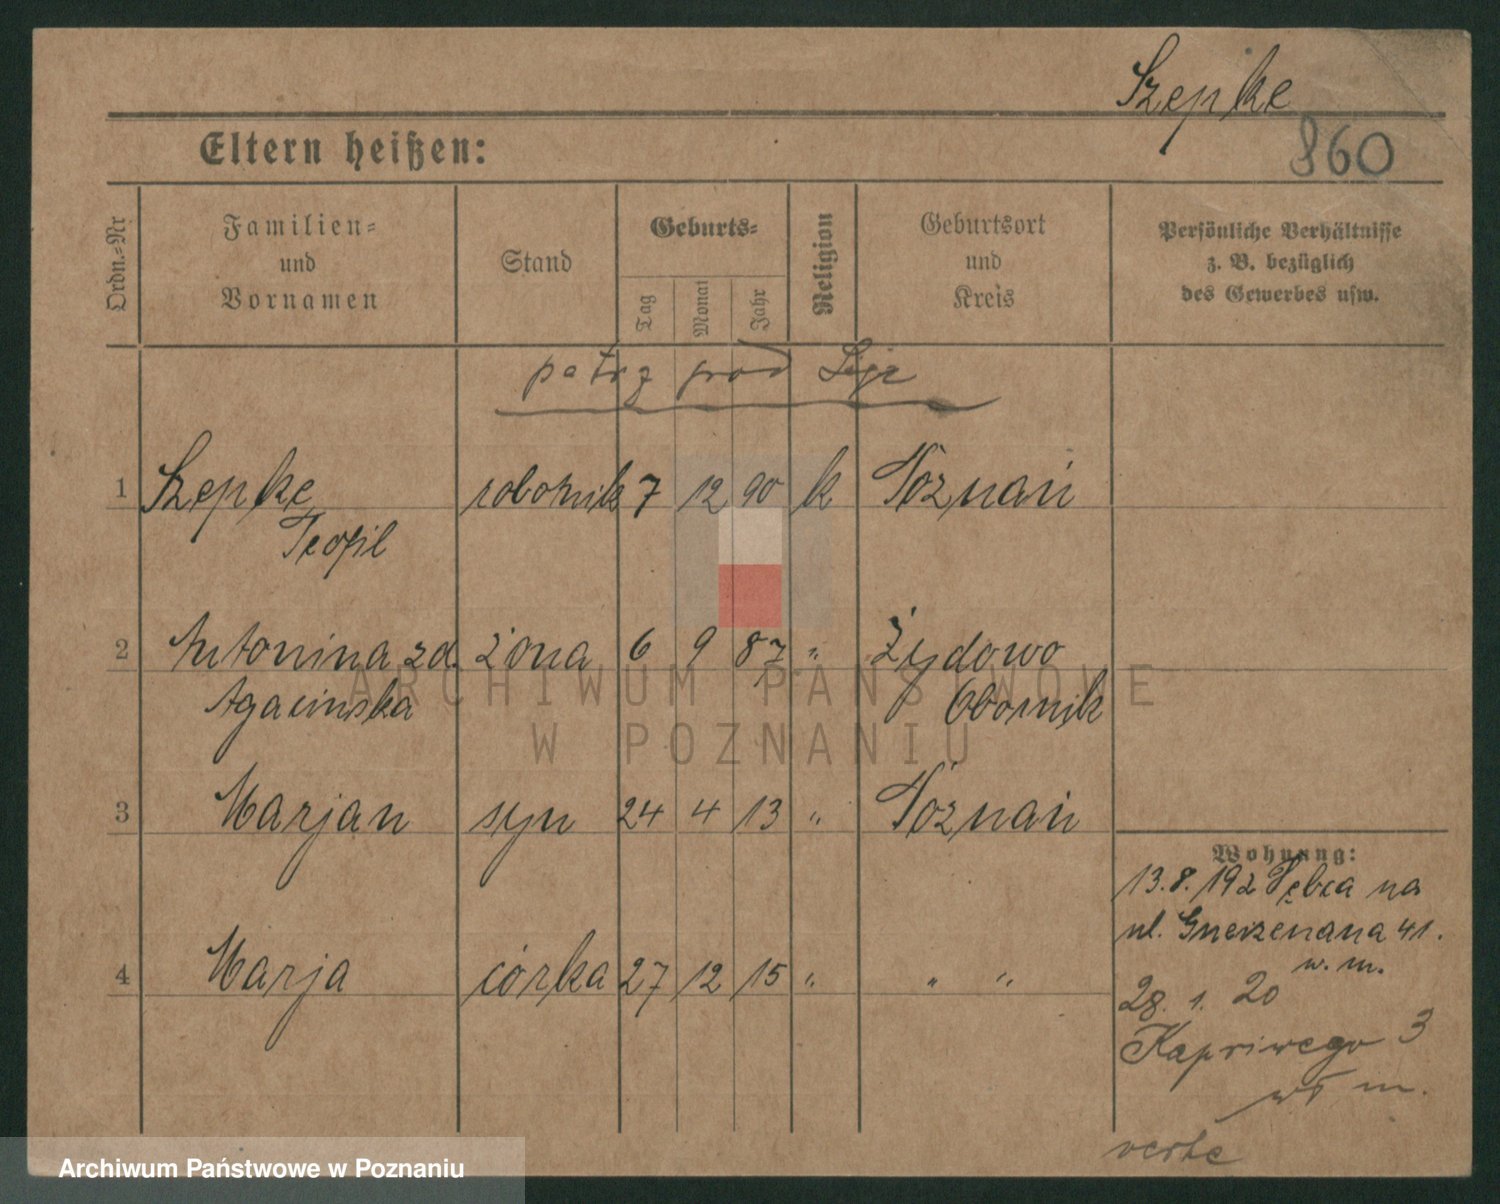 Szepke
860
Eltern heißen:
Ordn.=Nr
Familien=
und
Vornamen
Stand
Geburts=
Tag
Monat
Jahr
Religion
Geburtsort
und
Kreis
Persönliche Verhältnisse
z. B. bezüglich
des Gewerbes usw.
patrz pod
1 Szepke robotnik 7 12 90 k Poznań
Teofil
2 Antonina zd. żona 6 9 87 " Żydowo
Agacinska Obornik
3 Marjan syn 24 4 13 " Poznań
4 Marja córka 27 12 15 " " "
Wohnung:
13.8.192 na
ul. 41.
w. m.
28. 1. 20
Kapriwego 3
w m.
verte
ARCHIWUM PAŃSTWOWE
W POZNANIU
Archiwum Państwowe w Poznaniu